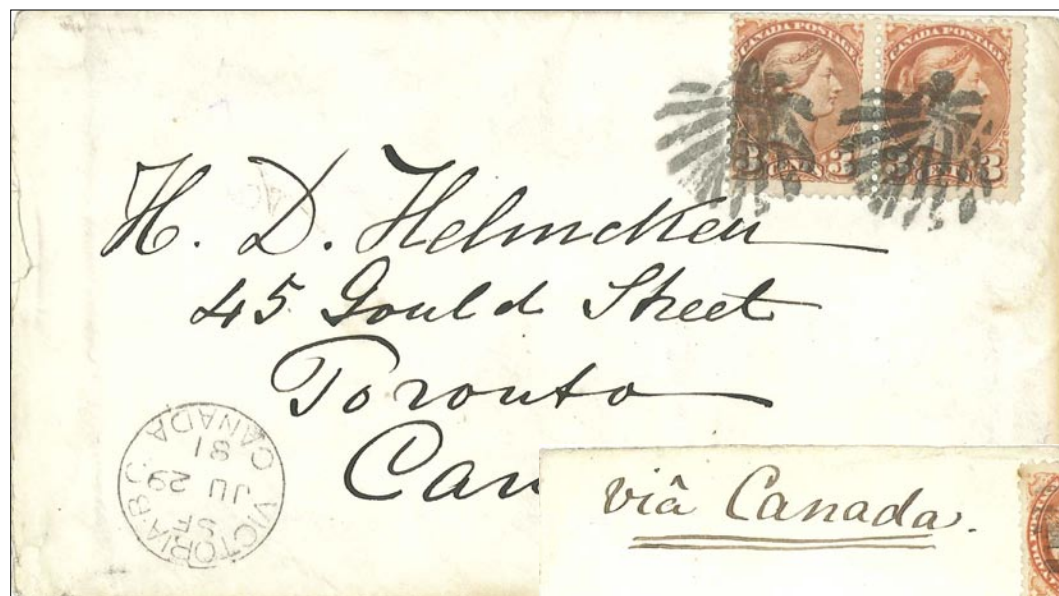 CANADA POSTAGE CANADA POSTAGE
3 CENTS 3 3 CENTS 3
H. D. Helmcken
45 Gould Street
Toronto
Can
VICTORIA·B.C
SF
JU 29
81
CANADA
viâ Canada.